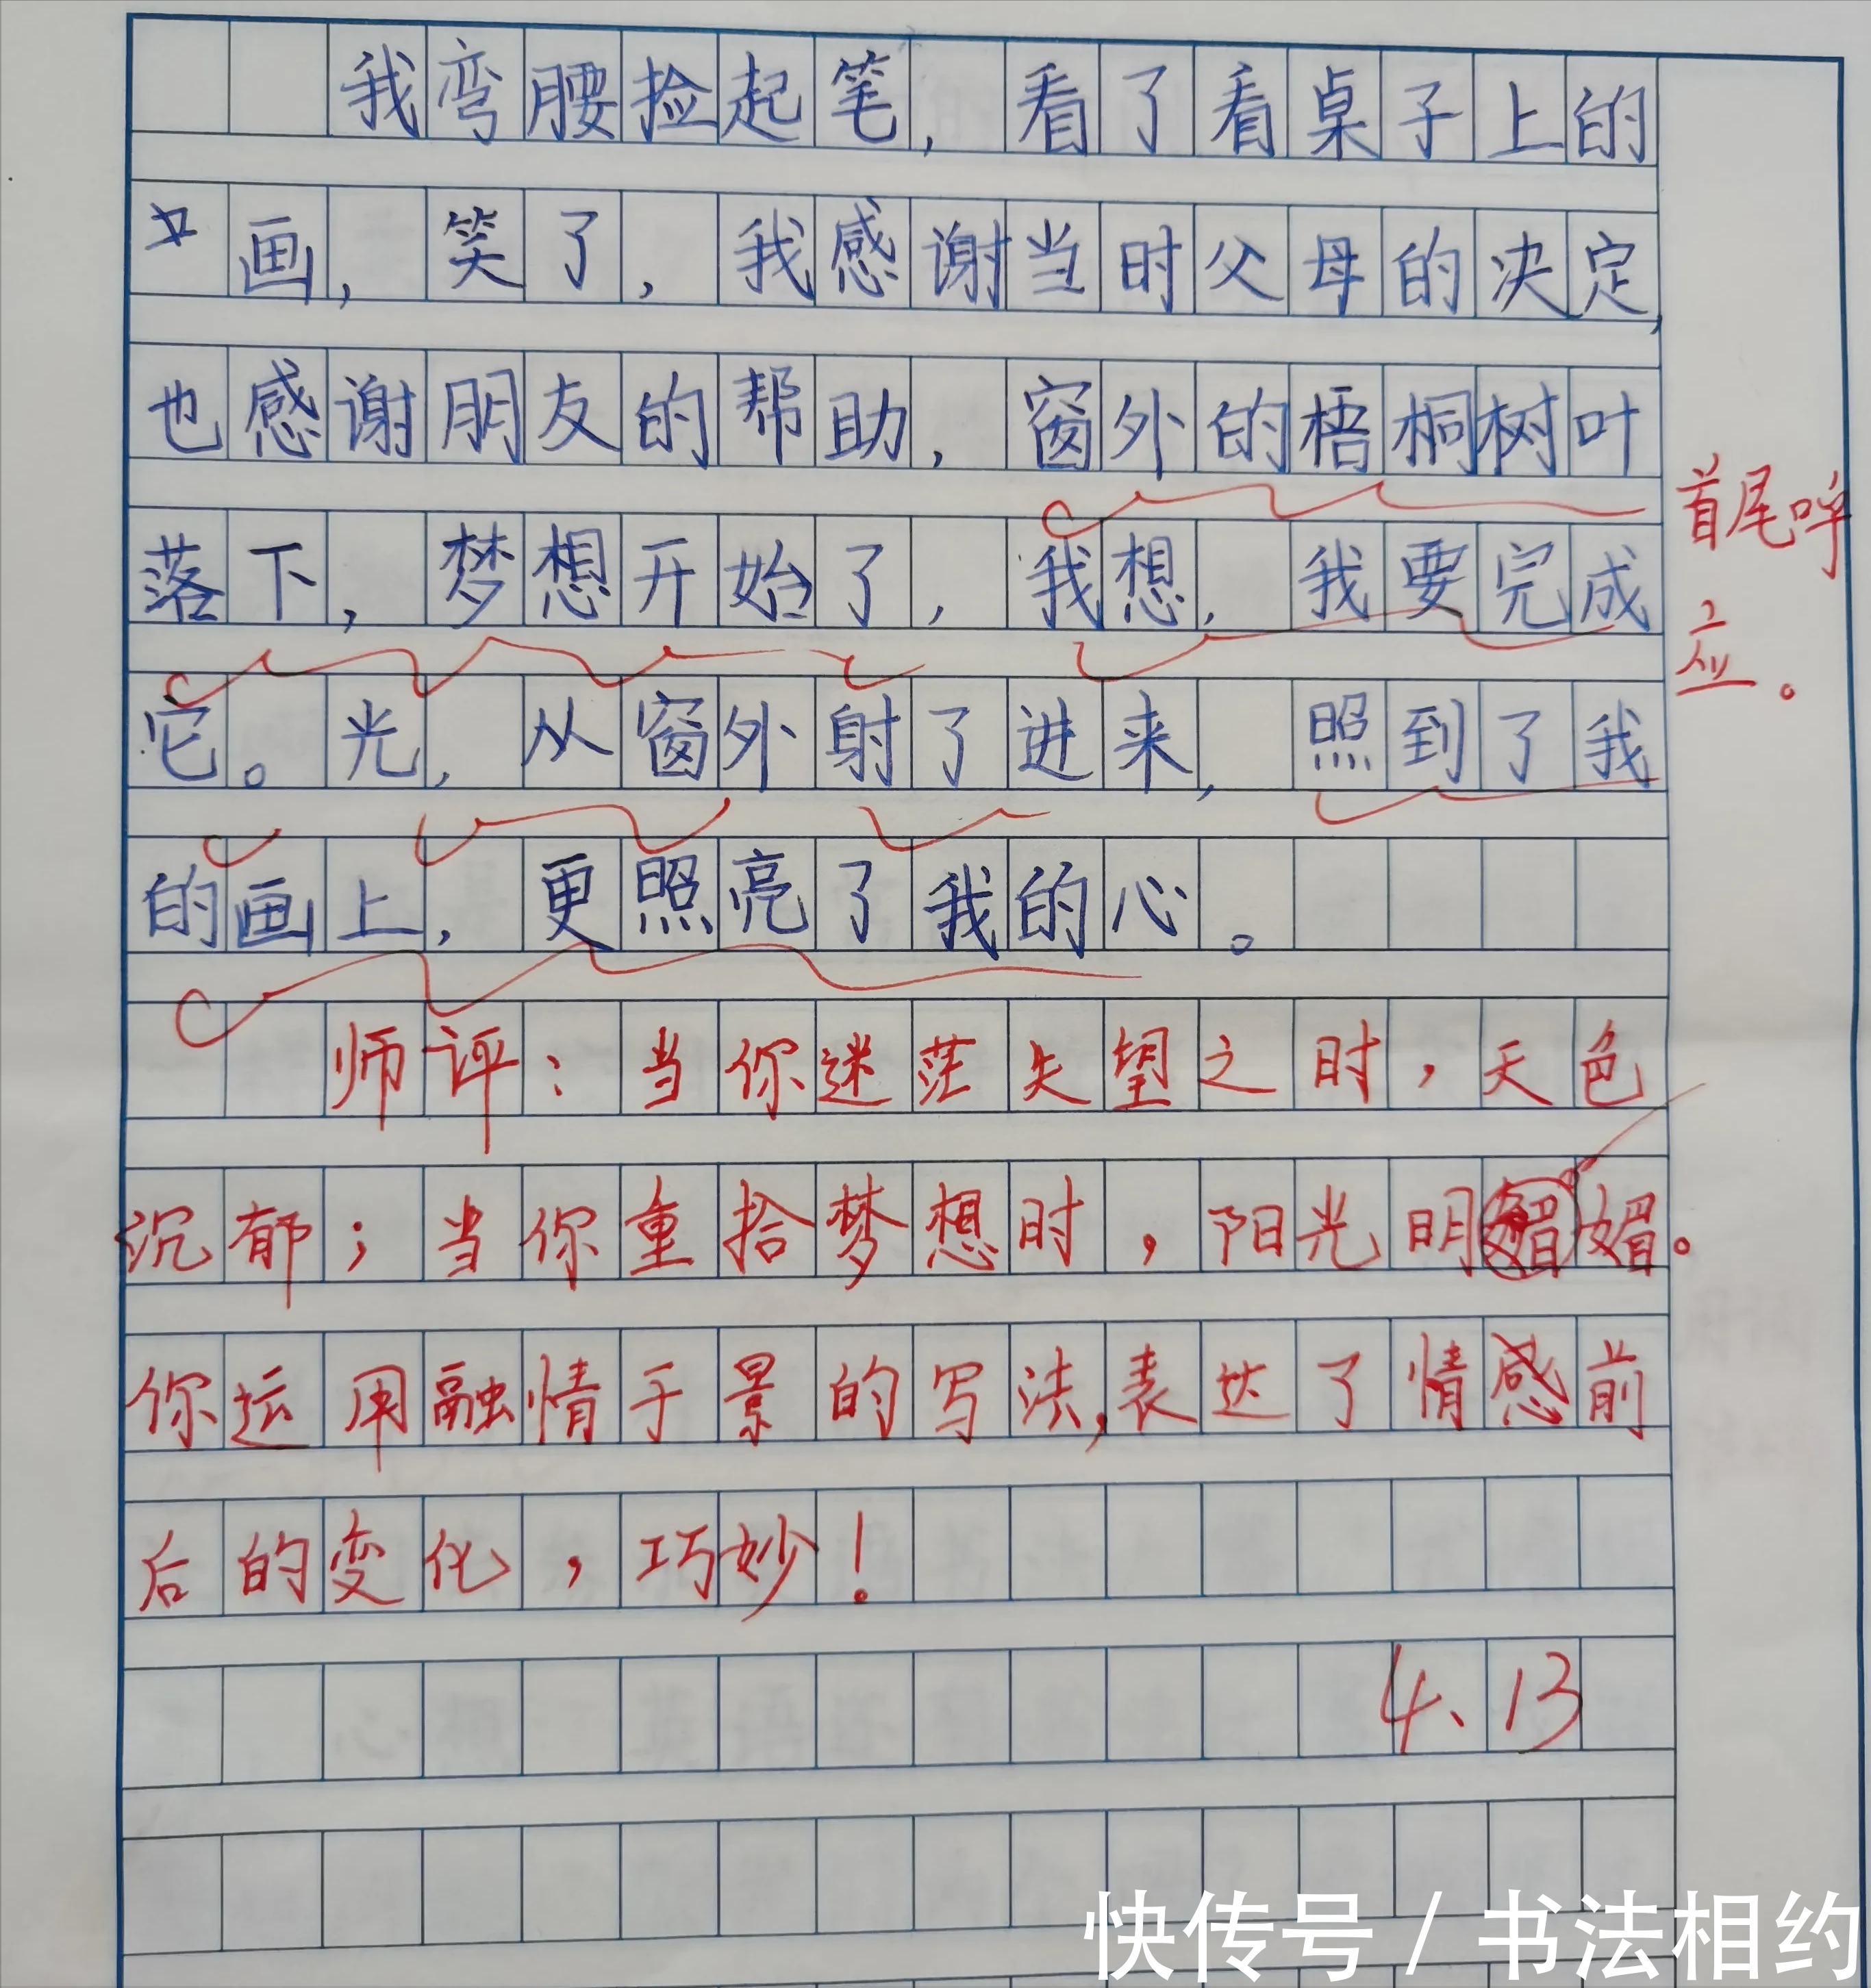 我弯腰捡起笔，看了看桌子上的
画，笑了，我感谢当时父母的决定，
也感谢朋友的帮助，窗外的梧桐树叶
落下，梦想开始了，我想，我要完成
它。光，从窗外射了进来，照到了我
的画上，更照亮了我的心。
首尾呼
应。
师评：当你迷茫失望之时，天色
沉郁；当你重拾梦想时，阳光明媚。
你运用融情于景的写法，表达了情感前
后的变化，巧妙！
4、13
快传号 / 书法相约